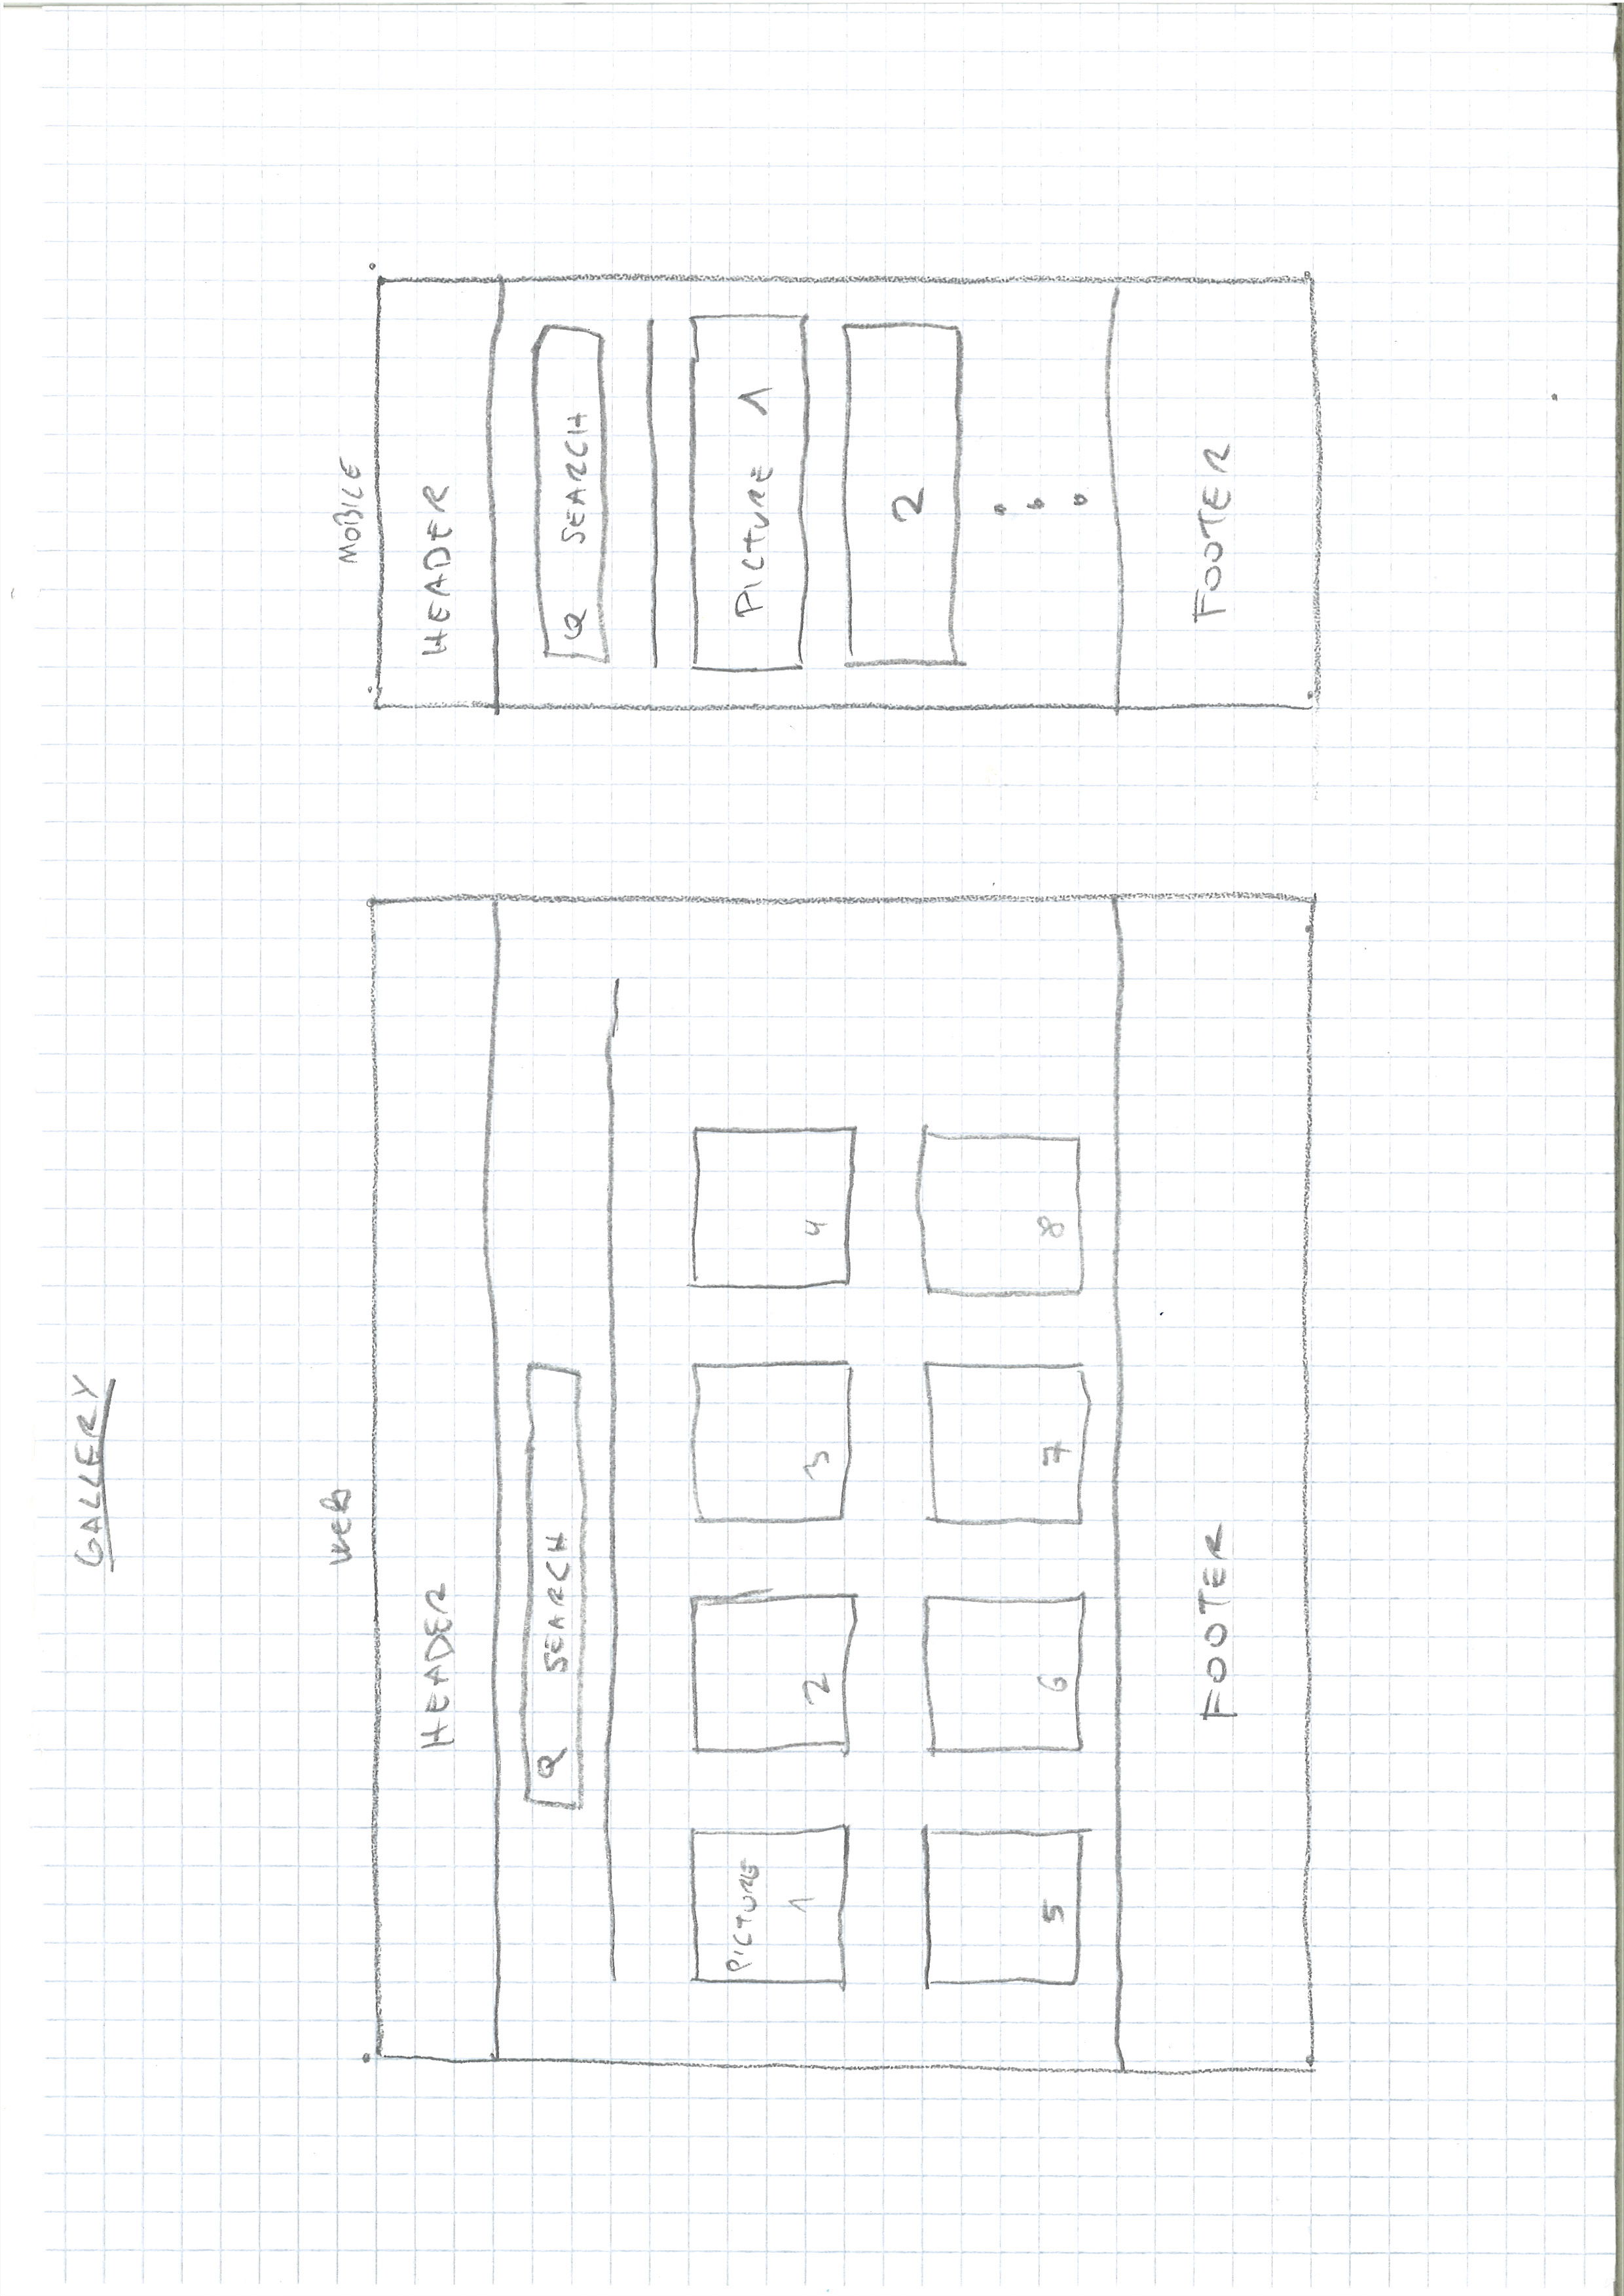 GALLERY
WEB
HEADER
Q SEARCH
PICTURE
1
2
3
4
5
6
7
8
FOOTER
MOBILE
HEADER
Q SEARCH
PICTURE 1
2
FOOTER